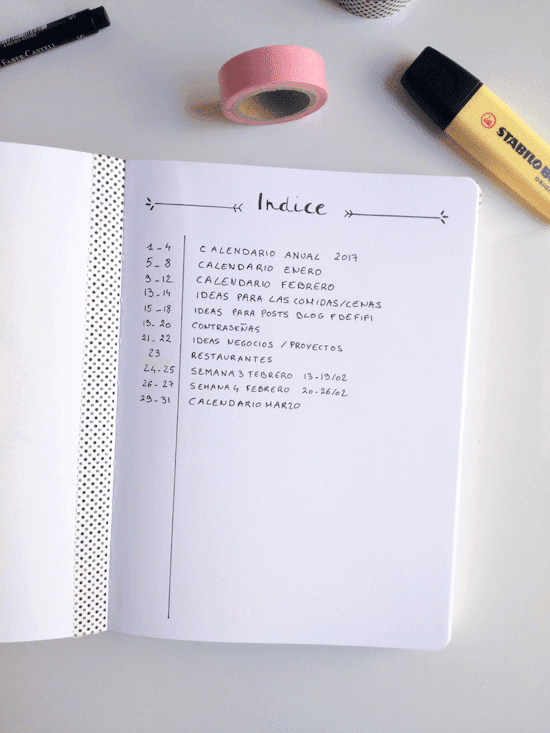 FABER CASTELL
STABILO B
ORIGI
Indice
1-4 CALENDARIO ANUAL 2017
5-8 CALENDARIO ENERO
9-12 CALENDARIO FEBRERO
13-14 IDEAS PARA LAS COMIDAS/CENAS
15-18 IDEAS PARA POSTS BLOG FDEFIFI
19-20 CONTRASEÑAS
21-22 IDEAS NEGOCIOS/PROYECTOS
23 RESTAURANTES
24-25 SEMANA 3 FEBRERO 13-19/02
26-27 SEMANA 4 FEBRERO 20-26/02
29-31 CALENDARIO MARZO